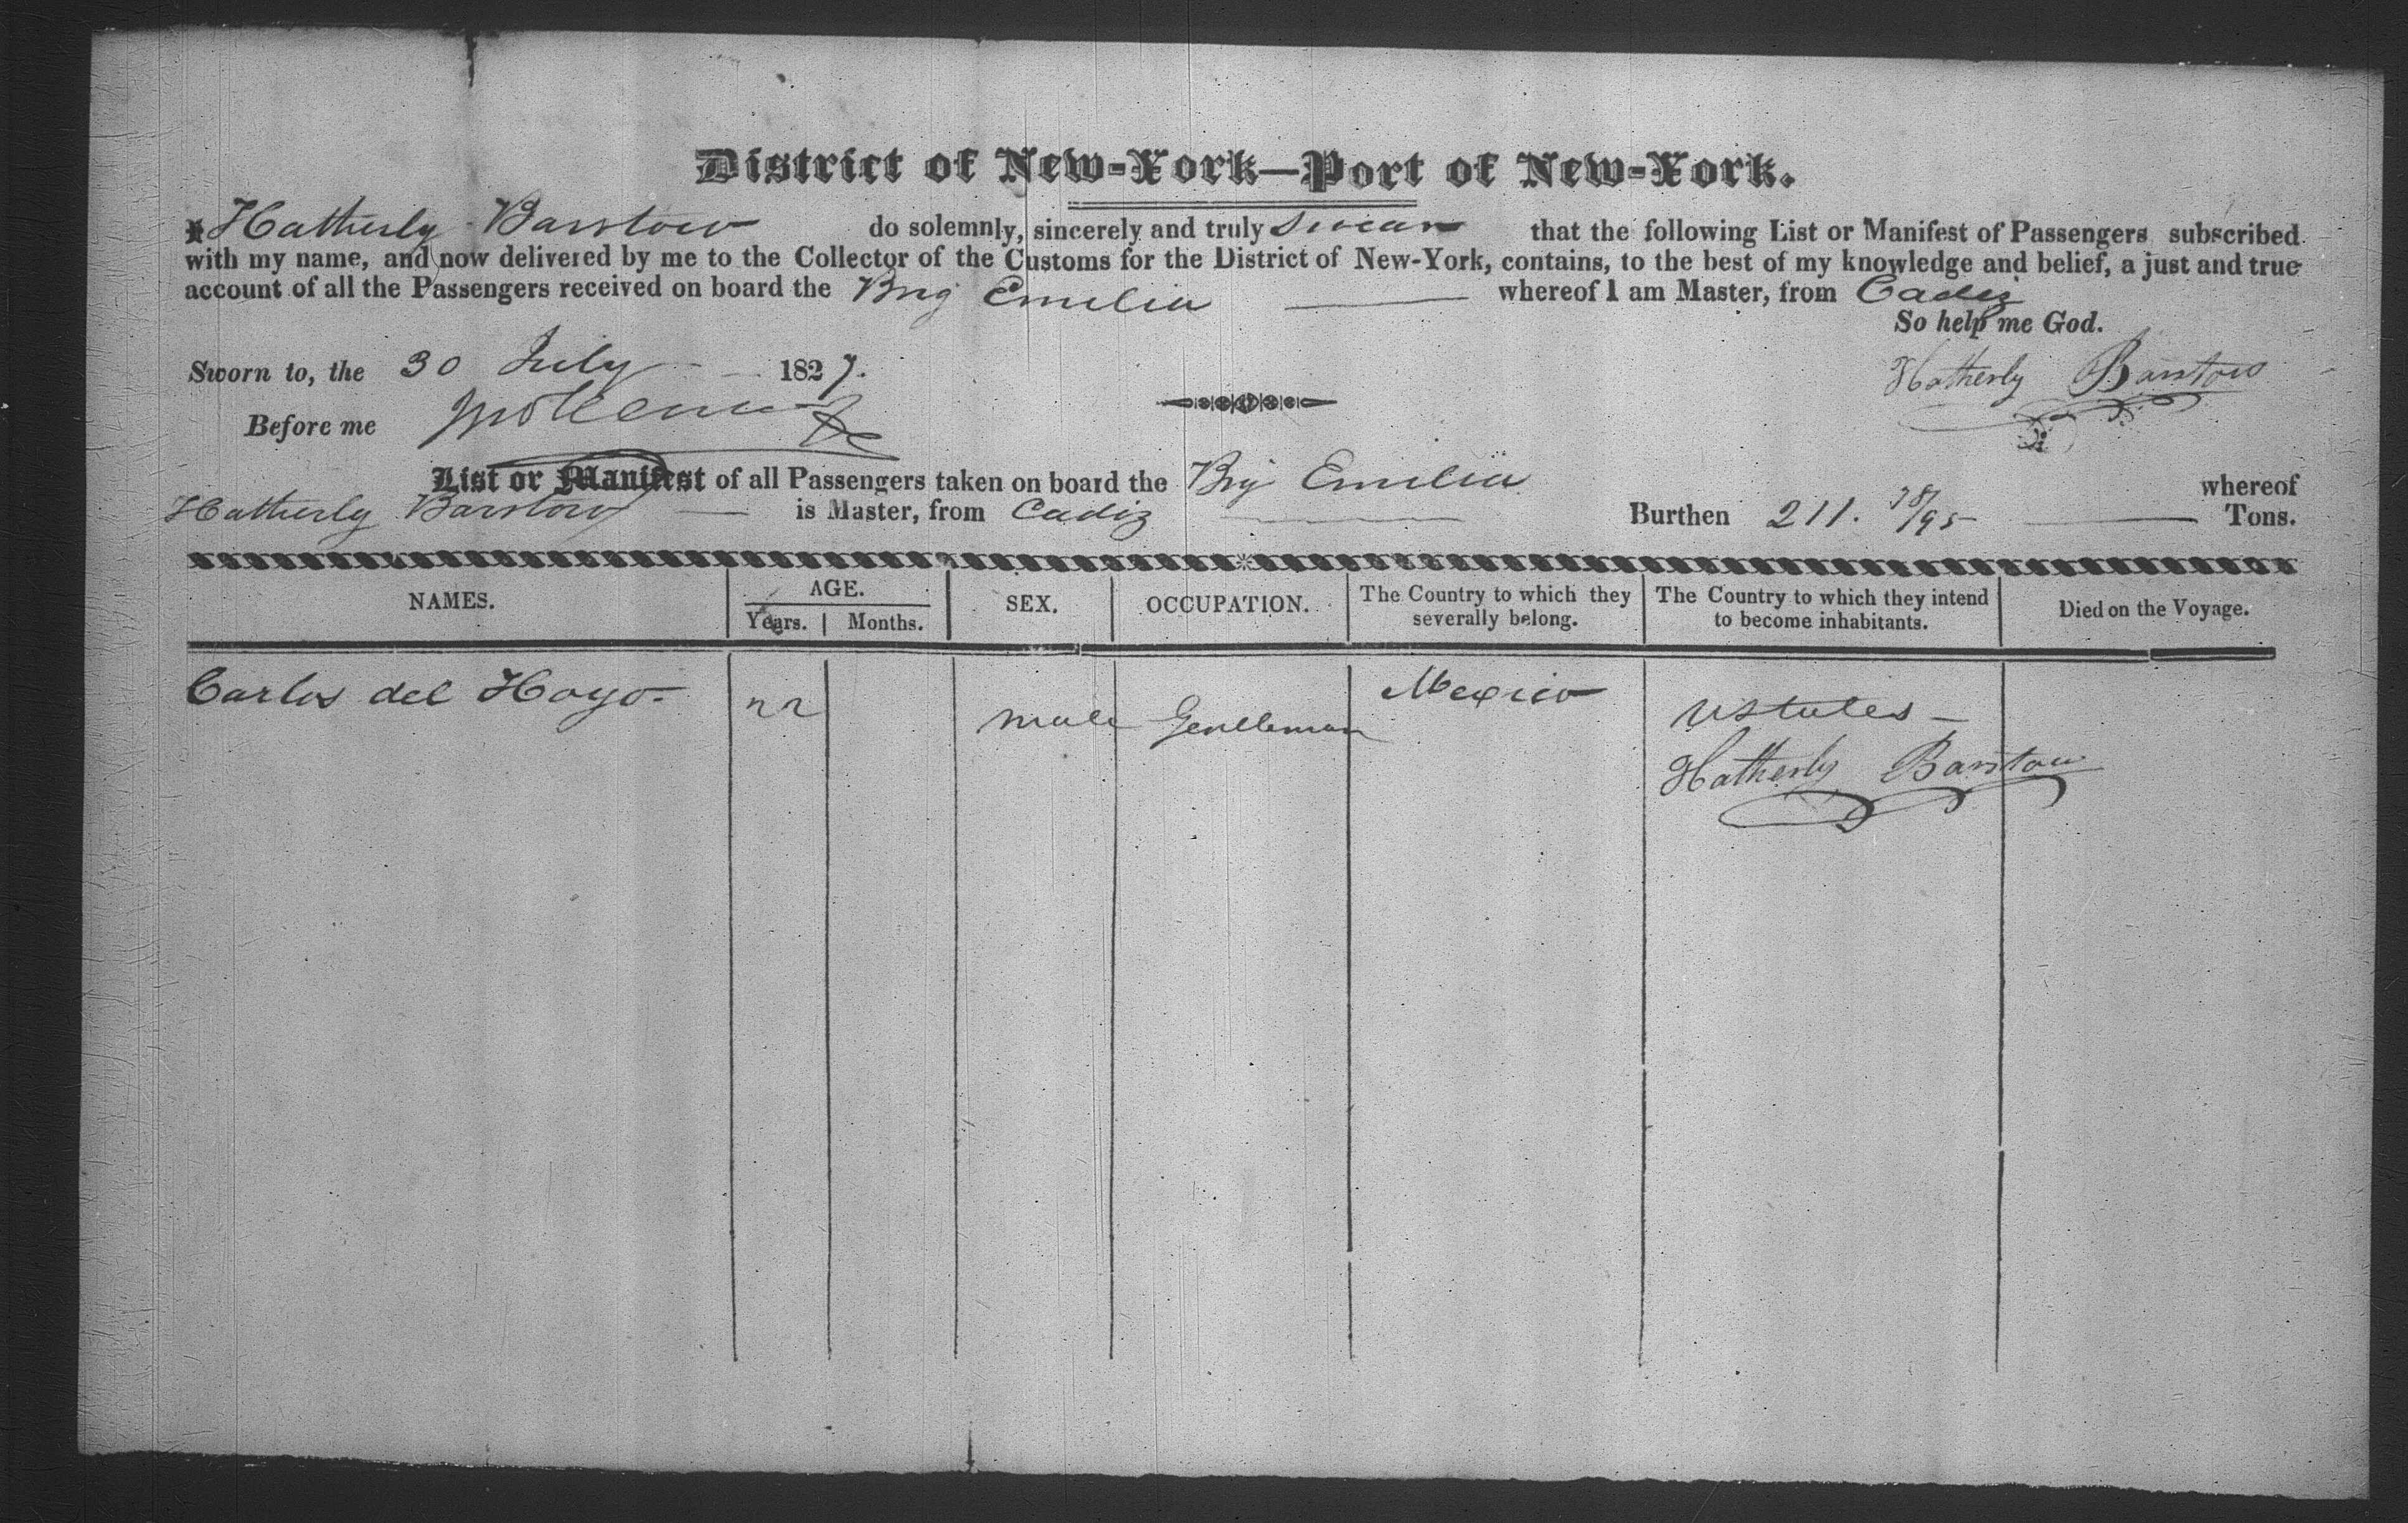 District of New-York—Port of New-York.
I Hatherly Barstow do solemnly, sincerely and truly Swear that the following List or Manifest of Passengers subscribed
with my name, and now delivered by me to the Collector of the Customs for the District of New-York, contains, to the best of my knowledge and belief, a just and true
account of all the Passengers received on board the Brig Emelia whereof I am Master, from Cadiz
So help me God.
Sworn to, the 30 July 1827.
Hatherly Barstow
Before me
List or Manifest of all Passengers taken on board the Brig Emelia whereof
Hatherly Barstow is Master, from Cadiz Burthen 211. 78/95 Tons.
NAMES. AGE. Years. Months. SEX. OCCUPATION. The Country to which they severally belong. The Country to which they intend to become inhabitants. Died on the Voyage.
Carlos del Hoyo. male Gentleman Mexico UStates
Hatherly Barstow